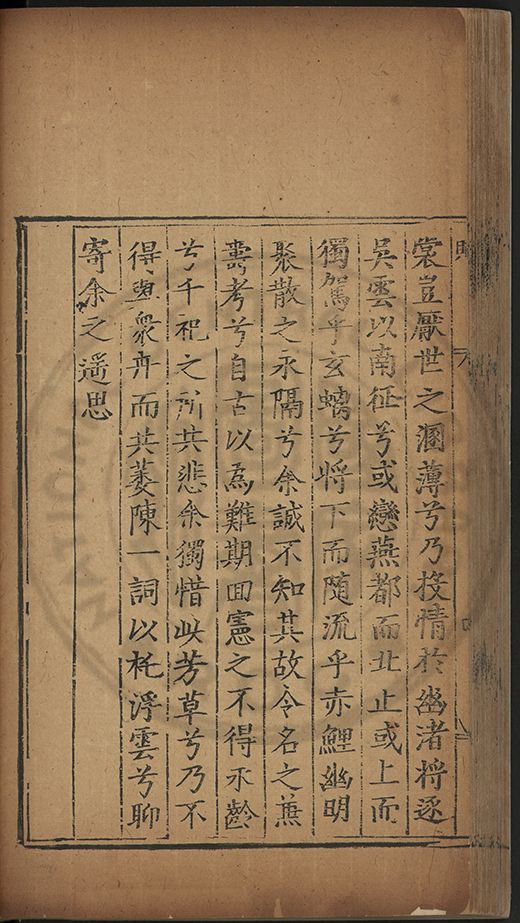 裳豈厭世之溷薄兮乃投情於幽渚將逐
吳雲以南征兮或戀燕都而北止或上而
獨駕乎玄螭兮將下而隨流乎赤鯉幽明
聚散之永隔兮余誠不知其故令名之兼
壽考兮自古以為難期回憲之不得永齡
兮千祀之所共悲余獨惜此芳草兮乃不
得與衆卉而共萎陳一詞以托浮雲兮聊
寄余之遥思